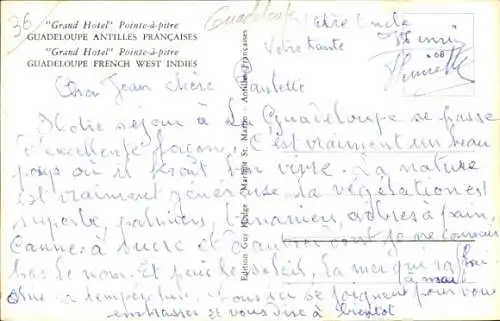 36
Guadeloupe
"Grand Hotel" Pointe-à-pitre
GUADELOUPE ANTILLES FRANÇAISES
"Grand Hotel" Pointe-à-pitre
GUADELOUPE FRENCH WEST INDIES
votre Oncle
Votre tante Henri
Henriette
Cher Jean Chère Paulette
Notre séjour à La Guadeloupe se passe
d'excellente façon, C'est vraiment un beau
pays où il ferait bon vivre. La nature
est vraiment généreuse, la végétation est
superbe, palmiers, bananiers, arbres à pain,
Canne à sucre et d'autres dont je ne connais
pas le nom. Et puis le soleil, la mer qui
température,
embrasser et vous dire à bientot
Edition Guy Marigot St. Martin Antilles Françaises